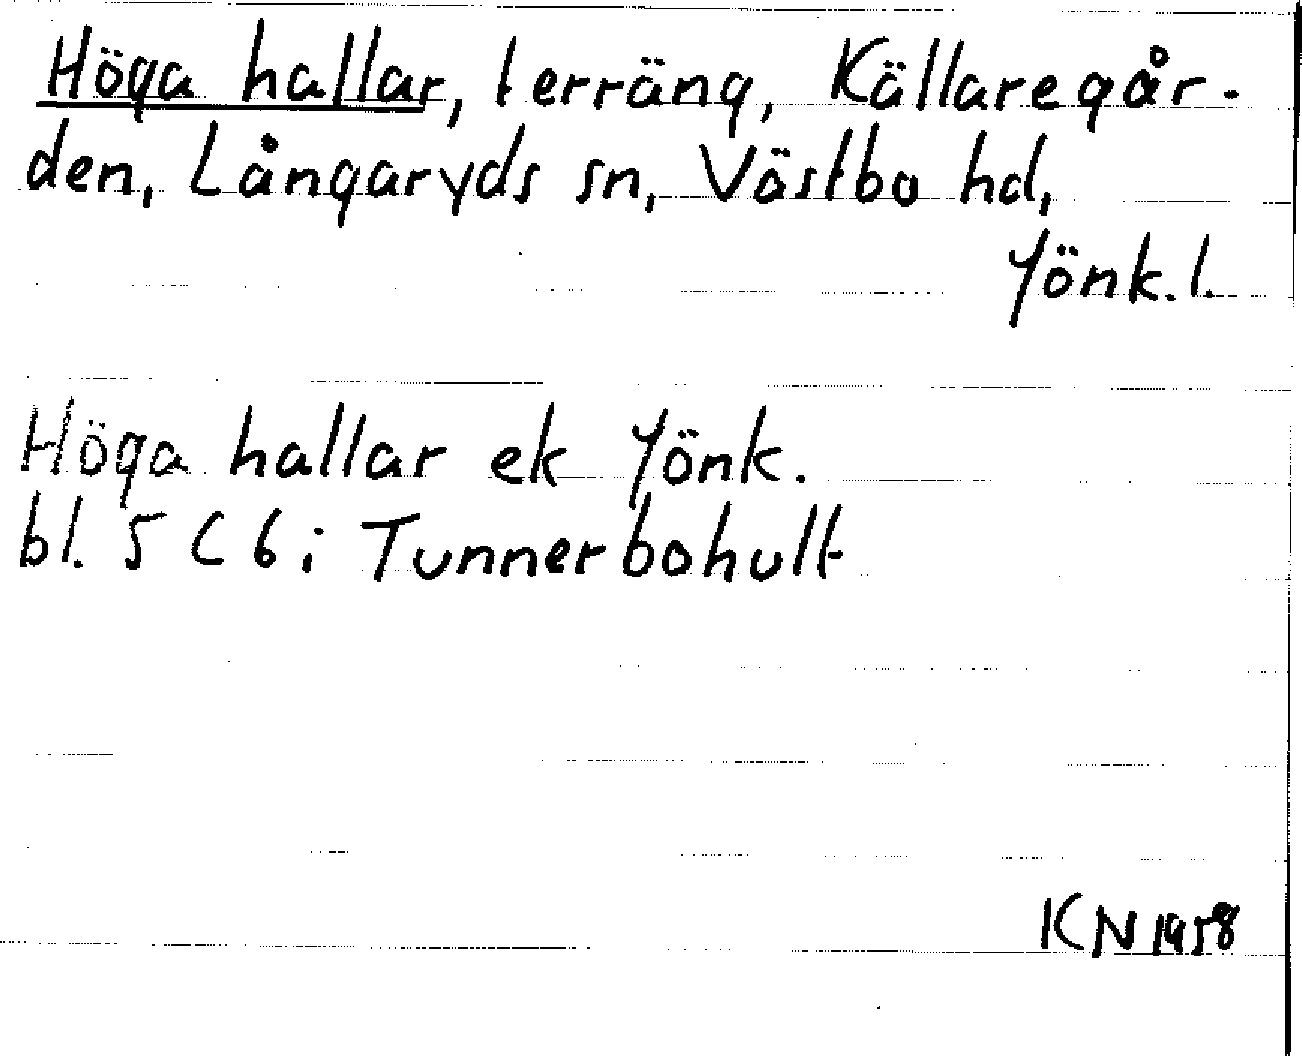 Höga hallar, terräng, Källaregår-
den, Långaryds sn, Västbo hd,
Jönk. l.
Höga hallar ek Jönk.
bl. 5 C 6 i Tunnerbohult
KN 1958